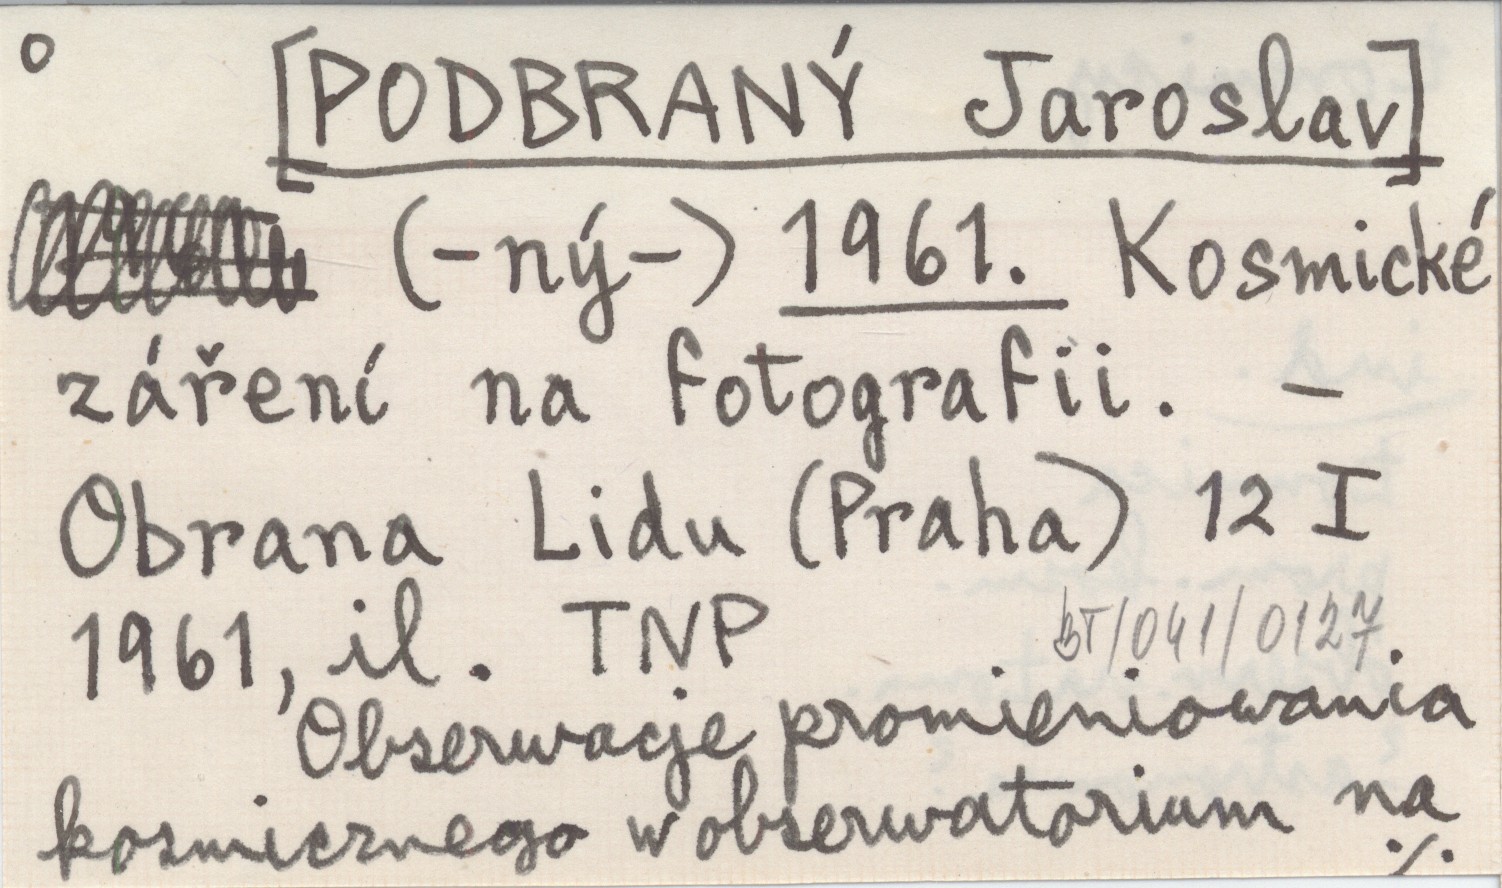 o
[PODBRANÝ Jaroslav]
(-ný-) 1961. Kosmické
záření na fotografii. -
Obrana Lidu (Praha) 12 I
1961, il. TNP BT/041/0127
Obserwacje promieniowania
kosmicznego w obserwatorium na
./.